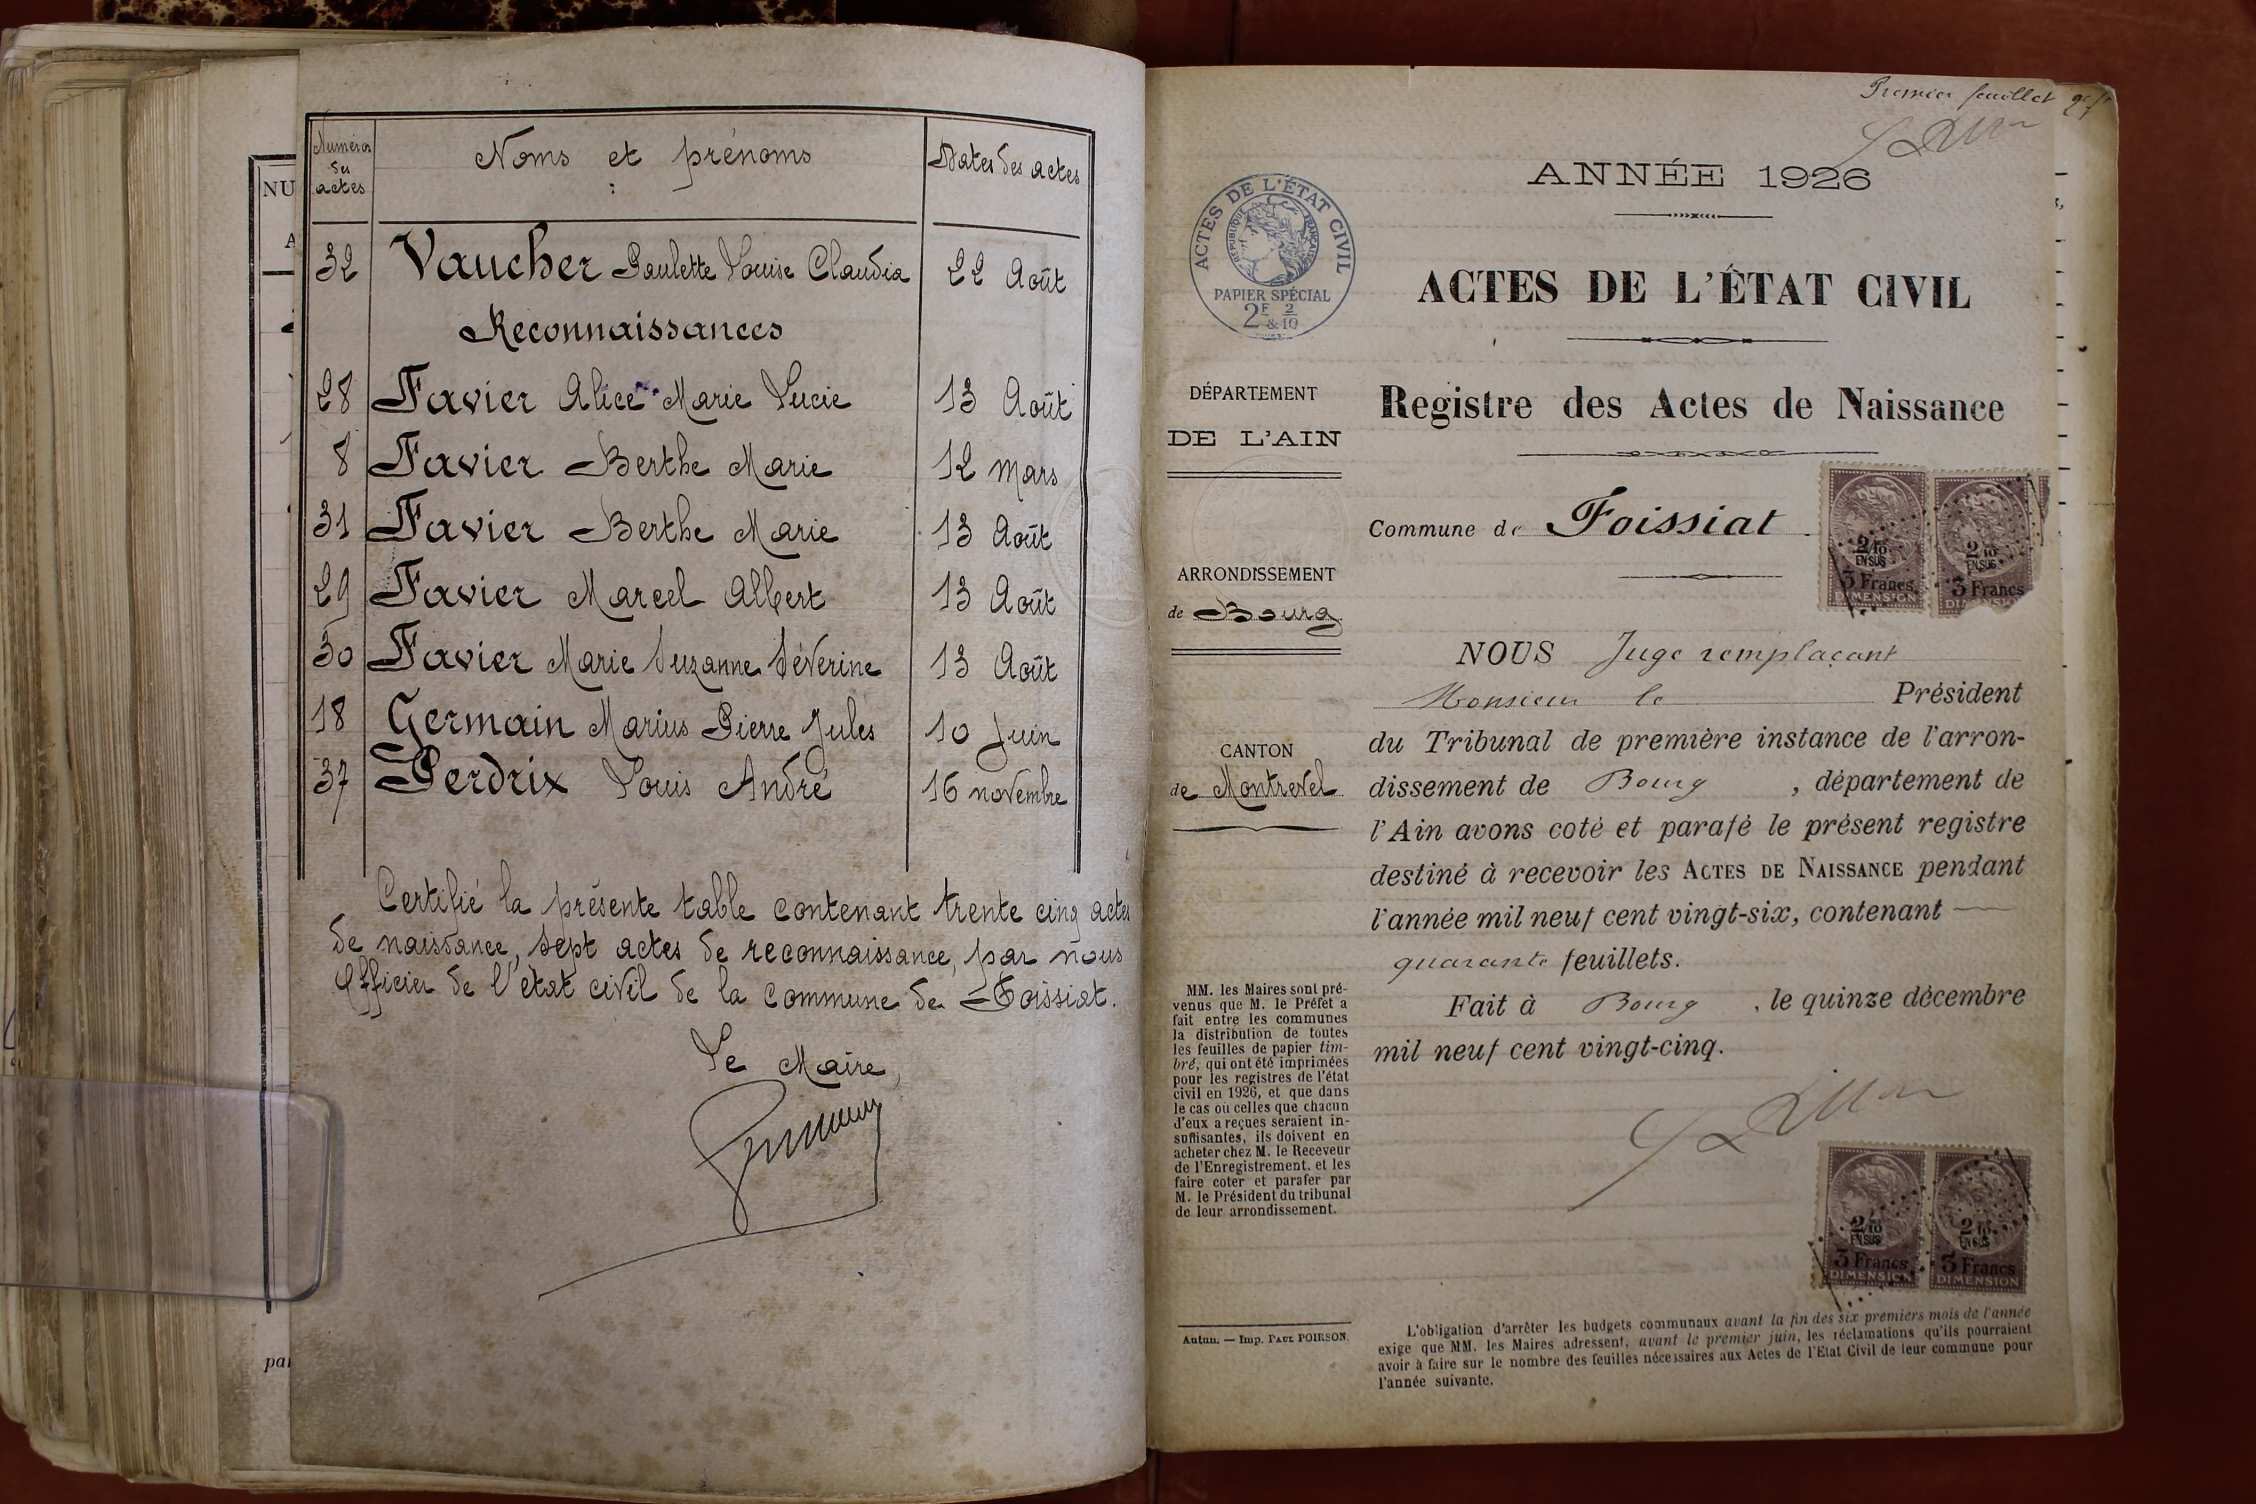 NU
A
par
Numéros des actes
Noms et prénoms
Dates des actes
32 Vaucher Paulette Louise Claudia 22 Août
Reconnaissances
28 Favier Alice Marie Lucie 13 Août
8 Favier Berthe Marie 12 mars
31 Favier Berthe Marie 13 Août
29 Favier Marcel Albert 13 Août
30 Favier Marie Suzanne Séverine 13 Août
18 Germain Marius Pierre Jules 10 Juin
37 Perdrix Louis André 16 novembre
Certifié la présente table contenant trente cinq actes
de naissance, sept actes de reconnaissance, par nous
Officier de l'état civil de la commune de Foissiat.
Le Maire,
Premier feuillet
ANNÉE 1926
ACTES DE L'ÉTAT CIVIL
RÉPUBLIQUE FRANÇAISE
PAPIER SPÉCIAL
2F & 2/10
ACTES DE L'ÉTAT CIVIL
Registre des Actes de Naissance
DÉPARTEMENT
DE L'AIN
ARRONDISSEMENT
de Bourg
CANTON
de Montrevel
MM. les Maires sont pré-
venus que M. le Préfet a
fait entre les communes
la distribution de toutes
les feuilles de papier tim-
bré, qui ont été imprimées
pour les registres de l'état
civil en 1926, et que dans
le cas où celles que chacun
d'eux a reçues seraient in-
suffisantes, ils doivent en
acheter chez M. le Receveur
de l'Enregistrement, et les
faire coter et parafer par
M. le Président du tribunal
de leur arrondissement.
Autun. — Imp. PAUL POIRSON.
Commune de Foissiat
2/10
EN SUS
3 Francs
DIMENSION
2/10
EN SUS
3 Francs
NOUS Juge remplaçant
Monsieur le Président
du Tribunal de première instance de l'arron-
dissement de Bourg, département de
l'Ain avons coté et parafé le présent registre
destiné à recevoir les ACTES DE NAISSANCE pendant
l'année mil neuf cent vingt-six, contenant
quarante feuillets.
Fait à Bourg, le quinze décembre
mil neuf cent vingt-cinq.
2/10
EN SUS
3 Francs
DIMENSION
2/10
EN SUS
3 Francs
DIMENSION
L'obligation d'arrêter les budgets communaux avant la fin des six premiers mois de l'année
exige que MM. les Maires adressent, avant le premier juin, les réclamations qu'ils pourraient
avoir à faire sur le nombre des feuilles nécessaires aux Actes de l'Etat Civil de leur commune pour
l'année suivante.